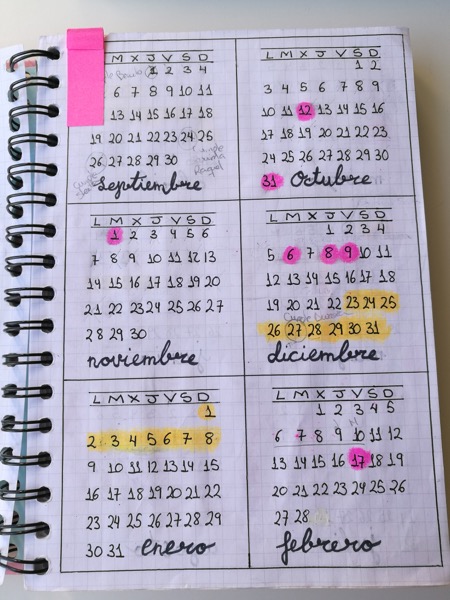 M X J V S D
1 2 3 4
6 7 8 9 10 11
13 14 15 16 17 18
19 20 21 22 23 24 25
26 27 28 29 30
Cumple
prima
Raquel
septiembre
L M X J V S D
1 2
3 4 5 6 7 8 9
10 11 12 13 14 15 16
17 18 19 20 21 22 23
24 25 26 27 28 29 30
31 octubre
L M X J V S D
1 2 3 4 5 6
7 8 9 10 11 12 13
14 15 16 17 18 19 20
21 22 23 24 25 26 27
28 29 30
noviembre
L M X J V S D
1 2 3 4
5 6 7 8 9 10 11
12 13 14 15 16 17 18
19 20 21 22 23 24 25
Cumple
26 27 28 29 30 31
diciembre
L M X J V S D
1
2 3 4 5 6 7 8
9 10 11 12 13 14 15
16 17 18 19 20 21 22
23 24 25 26 27 28 29
30 31 enero
L M X J V S D
1 2 3 4 5
6 7 8 9 10 11 12
13 14 15 16 17 18 19
20 21 22 23 24 25 26
27 28
febrero